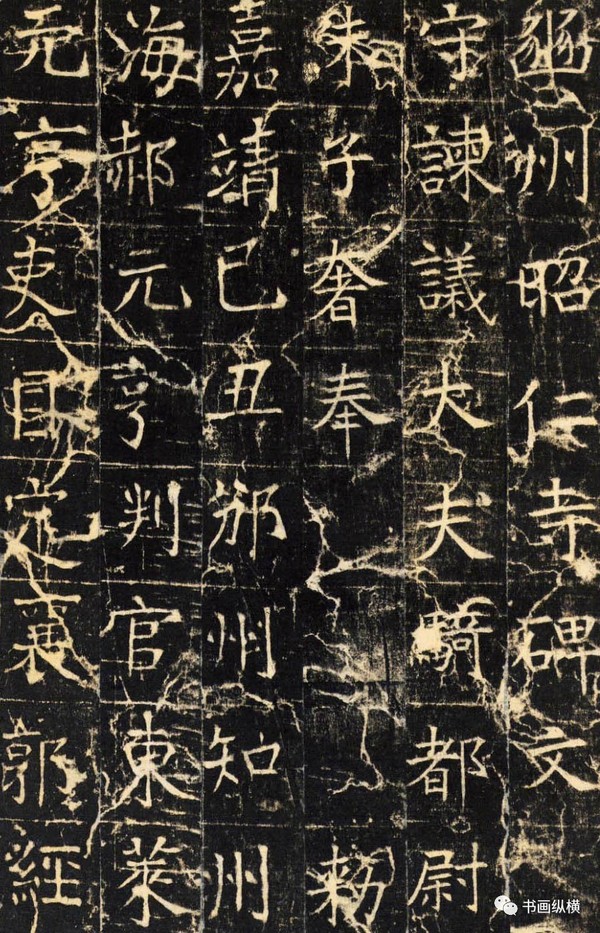 豳州昭仁寺碑文
守諫議大夫騎都尉
朱子奢奉 勑
嘉靖己丑邠州知州
海郝元亨判官東萊
亨吏目定襄郭經
书画纵横